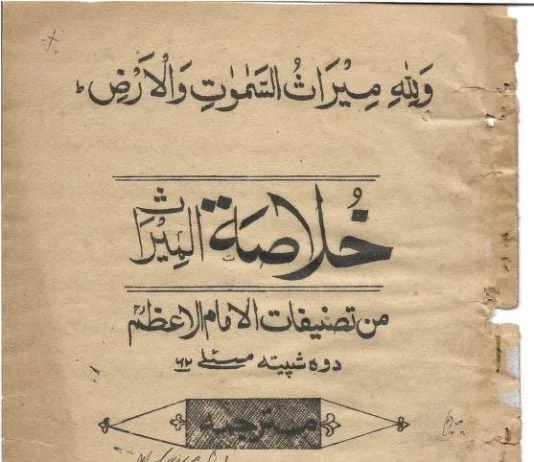 وَلِلّٰهِ مِيْرَاثُ السَّمٰوٰتِ وَالْاَرْضِ ط
خُلاصَة المِيْرَاث
من تصنيفات الامام الاعظمؒ
دوہ شپيته مسئلے ٦٢
مترجمه